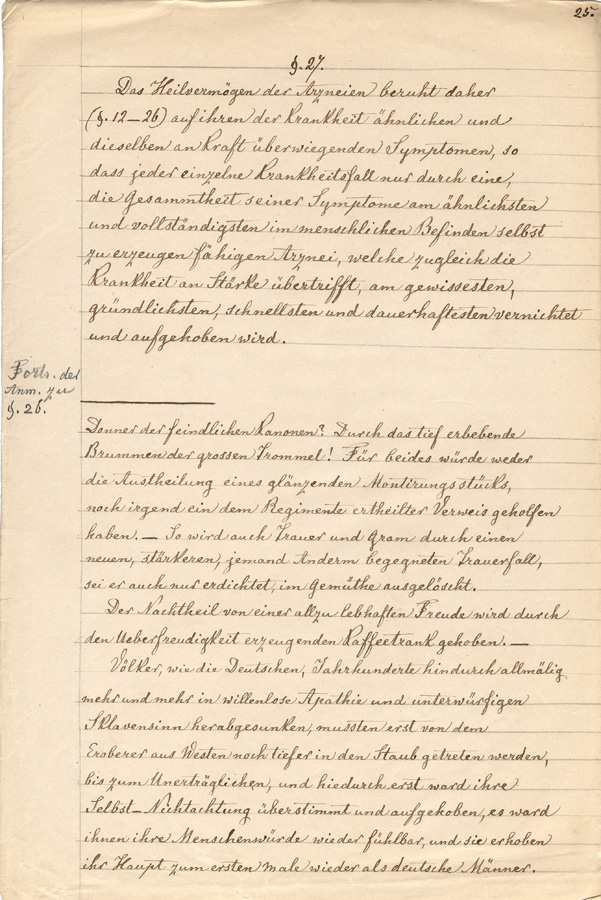 25.
§. 27.
Das Heilvermögen der Arzneien beruht daher
(§. 12—26) auf ihren der Krankheit ähnlichen und
dieselben an Kraft überwiegenden Symptomen, so
dass jeder einzelne Krankheitsfall nur durch eine,
die Gesammtheit seiner Symptome am ähnlichsten
und vollständigsten im menschlichen Befinden selbst
zu erzeugen fähigen Arznei, welche zugleich die
Krankheit an Stärke übertrifft, am gewissesten,
gründlichsten, schnellsten und dauerhaftesten vernichtet
und aufgehoben wird.
Forts. der
Anm. zu
§. 26.
Donner der feindlichen Kanonen? Durch das tief erbebende
Brummen der grossen Trommel! Für beides würde weder
die Austheilung eines glänzenden Montirungsstücks,
noch irgend ein dem Regimente ertheilter Verweis geholfen
haben. — So wird auch Trauer und Gram durch einen
neuen, stärkeren, jemand Anderm begegneten Trauerfall,
sei er auch nur erdichtet, im Gemüthe ausgelöscht.
Der Nachtheil von einer allzu lebhaften Freude wird durch
den Ueberfreudigkeit erzeugenden Kaffeetrank gehoben. —
Völker, wie die Deutschen, Jahrhunderte hindurch allmälig
mehr und mehr in willenlose Apathie und unterwürfigen
Sklavensinn herabgesunken, mussten erst von dem
Eroberer aus Westen noch tiefer in den Staub getreten werden,
bis zum Unerträglichen, und hiedurch erst ward ihre
Selbst-Nichtachtung überstimmt und aufgehoben, es ward
ihnen ihre Menschenwürde wieder fühlbar, und sie erhoben
ihr Haupt zum ersten male wieder als deutsche Männer.